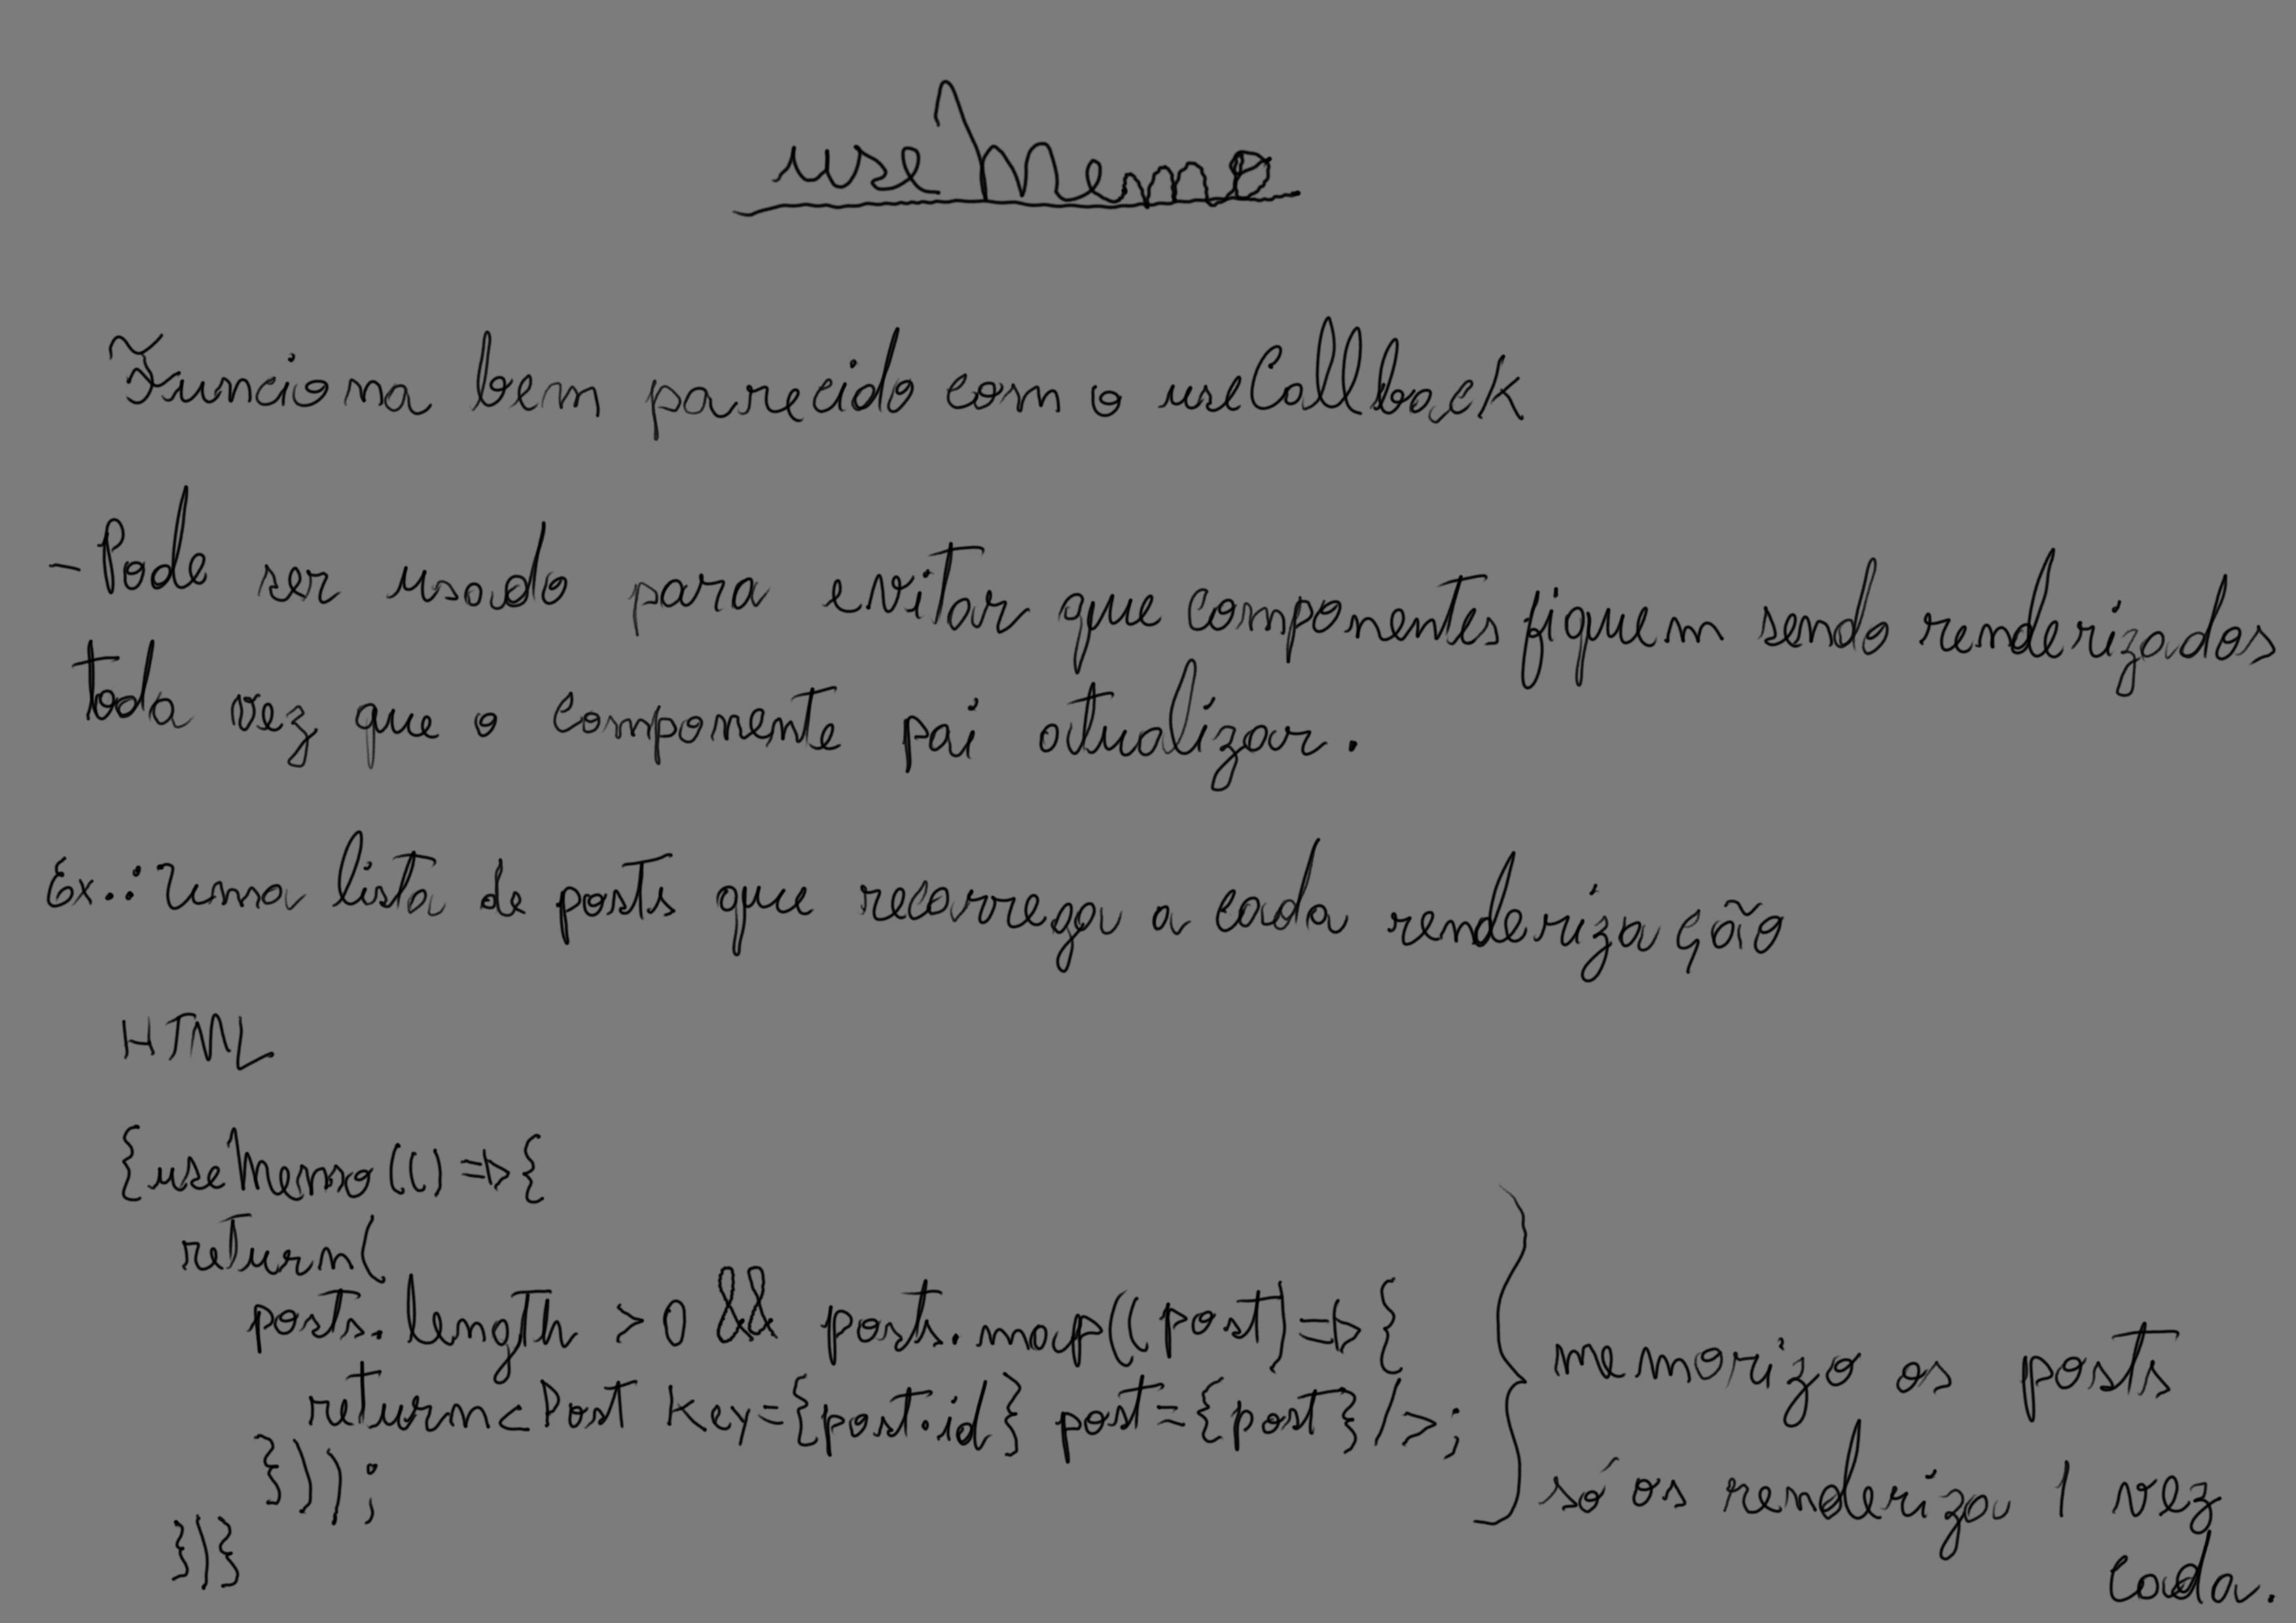 useMemo
Funciona bem parecido com o useCallback
- Pode ser usado para evitar que componentes fiquem sendo renderizados
toda vez que o componente pai atualizar.
Ex.: Uma lista de posts que recarrega a cada renderização
HTML
{useMemo(() => {
return(
posts.length > 0 && posts.map((post) => {
return <Post key={post.id} post={post} />;
}));
})}
memoriza os posts
só os renderiza 1 vez
cada.